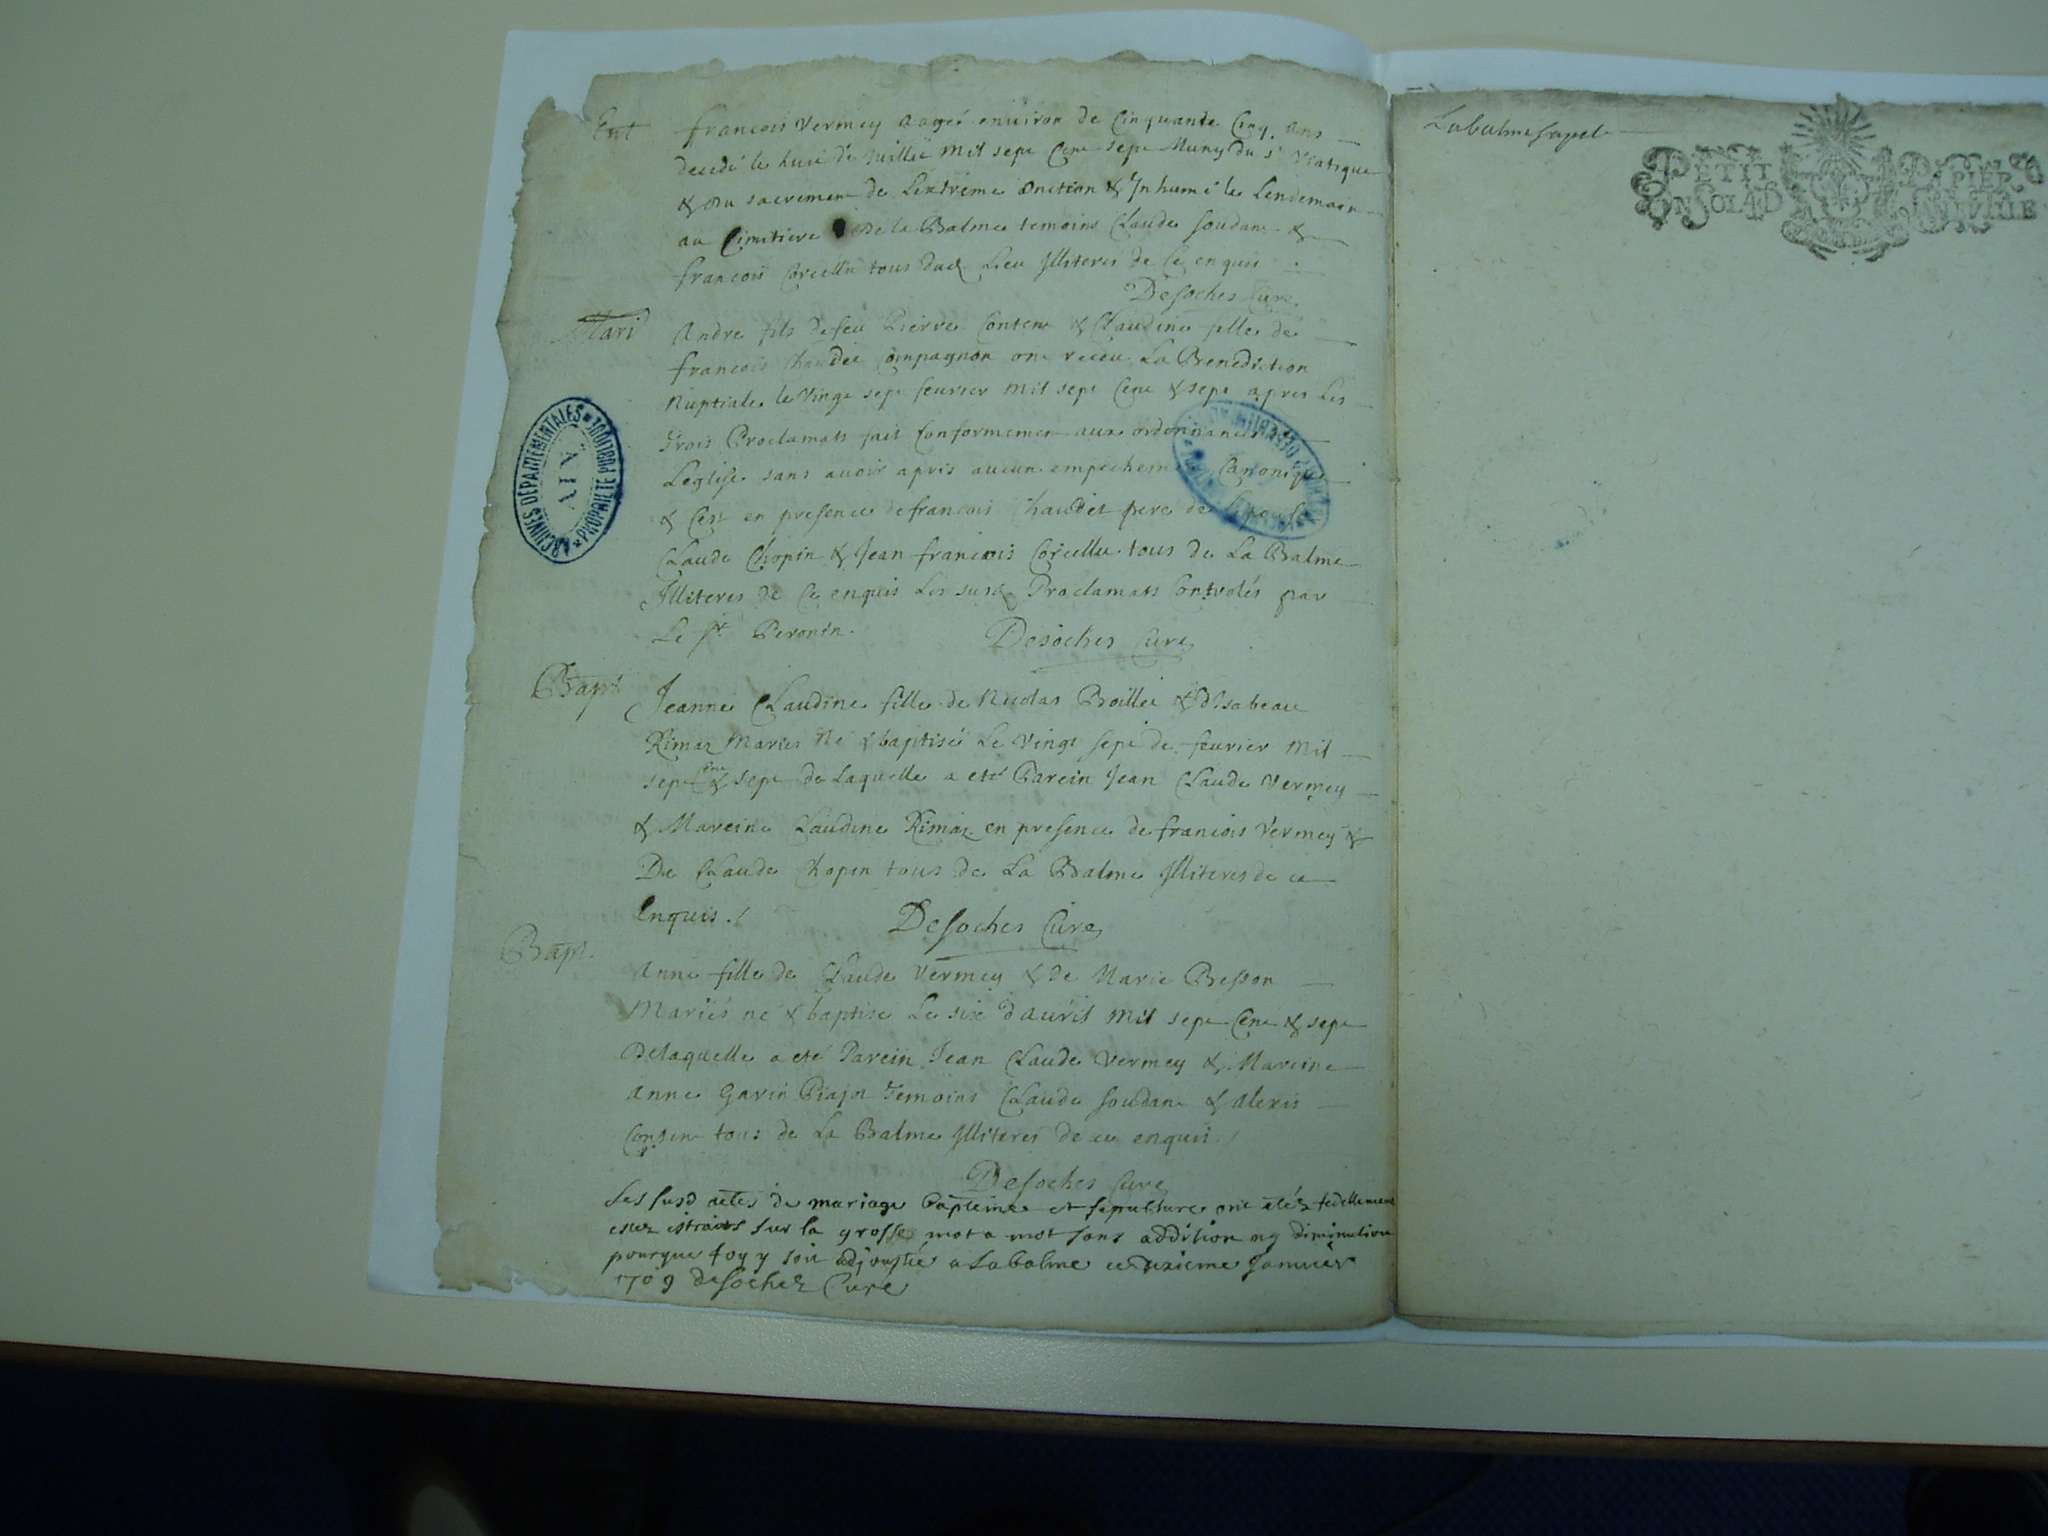 Ent
francois Vermey aagé enuiron de Cinquante Cinq ans
decedé le huit de Juillie mil sept Cent sept Muny du st Viatique
& du sacrement de Lextreme onction & Inhumé le Lendemain
au Cimitiere de la Balme temoins Claude soudan &
francois Corcellu tous dud Lieu Illiteres de Ce enquis
Desoches Curé
Mari
Andre fils de feu Pierre Conten & Claudine fille de
francois Chaudet Compagnon ont receu La Benediction
Nuptiale le Vingt sept feurier mil sept Cent & sept apres Les
Trois Proclamats fait Conformement aux ordonnances
Leglise sans auoir apris aucun empechem Canonique
& C'est en presence de francois Chaudet pere de Lepouse
Claude Chopin & Jean francois Corcellu tous de La Balme
Illiteres de Ce enquis Les susd Proclamats Controlés par
Le sr Peronin.
Desoches Curé
Bapt
Jeanne Claudine fille de Nicolas Boillet & d'Isabeau
Rimaz Mariés Né & baptisée Le Vingt sept de feurier mil
sept Cent & sept de Laquelle a eté Parein Jean Claude Vermey
& Mareine Claudine Rimaz en presence de francois Vermey &
De Claude Chopin tous de La Balme Illiteres de ce
Enquis./
Desoches Curé
Bapt.
Anne fille de Claude Vermey & de Marie Besson
Mariés né & baptisé Le six dauril mil sept Cent & sept
de laquelle a eté Parein Jean Claude Vermey & Mareine
Anne Gavin Piajot Temoins Claude soudan & alexis
tous de La Balme Illiteres de ce enquis./
Desoches Curé
Les susd actes de mariage bapteme et sepulture ont etéz fidellement
estez estraits sur la grosse mot a mot sans addition ny diminution
pourque foy y soit adjoustée a Labalme ce Janvier
1709 desochez Curé
ARCHIVES DÉPARTEMENTALES
AIN
PROPRIÉTÉ PUBLIQUE
Labalme sapel
PETIT PAPIER
UN SOL 4 D